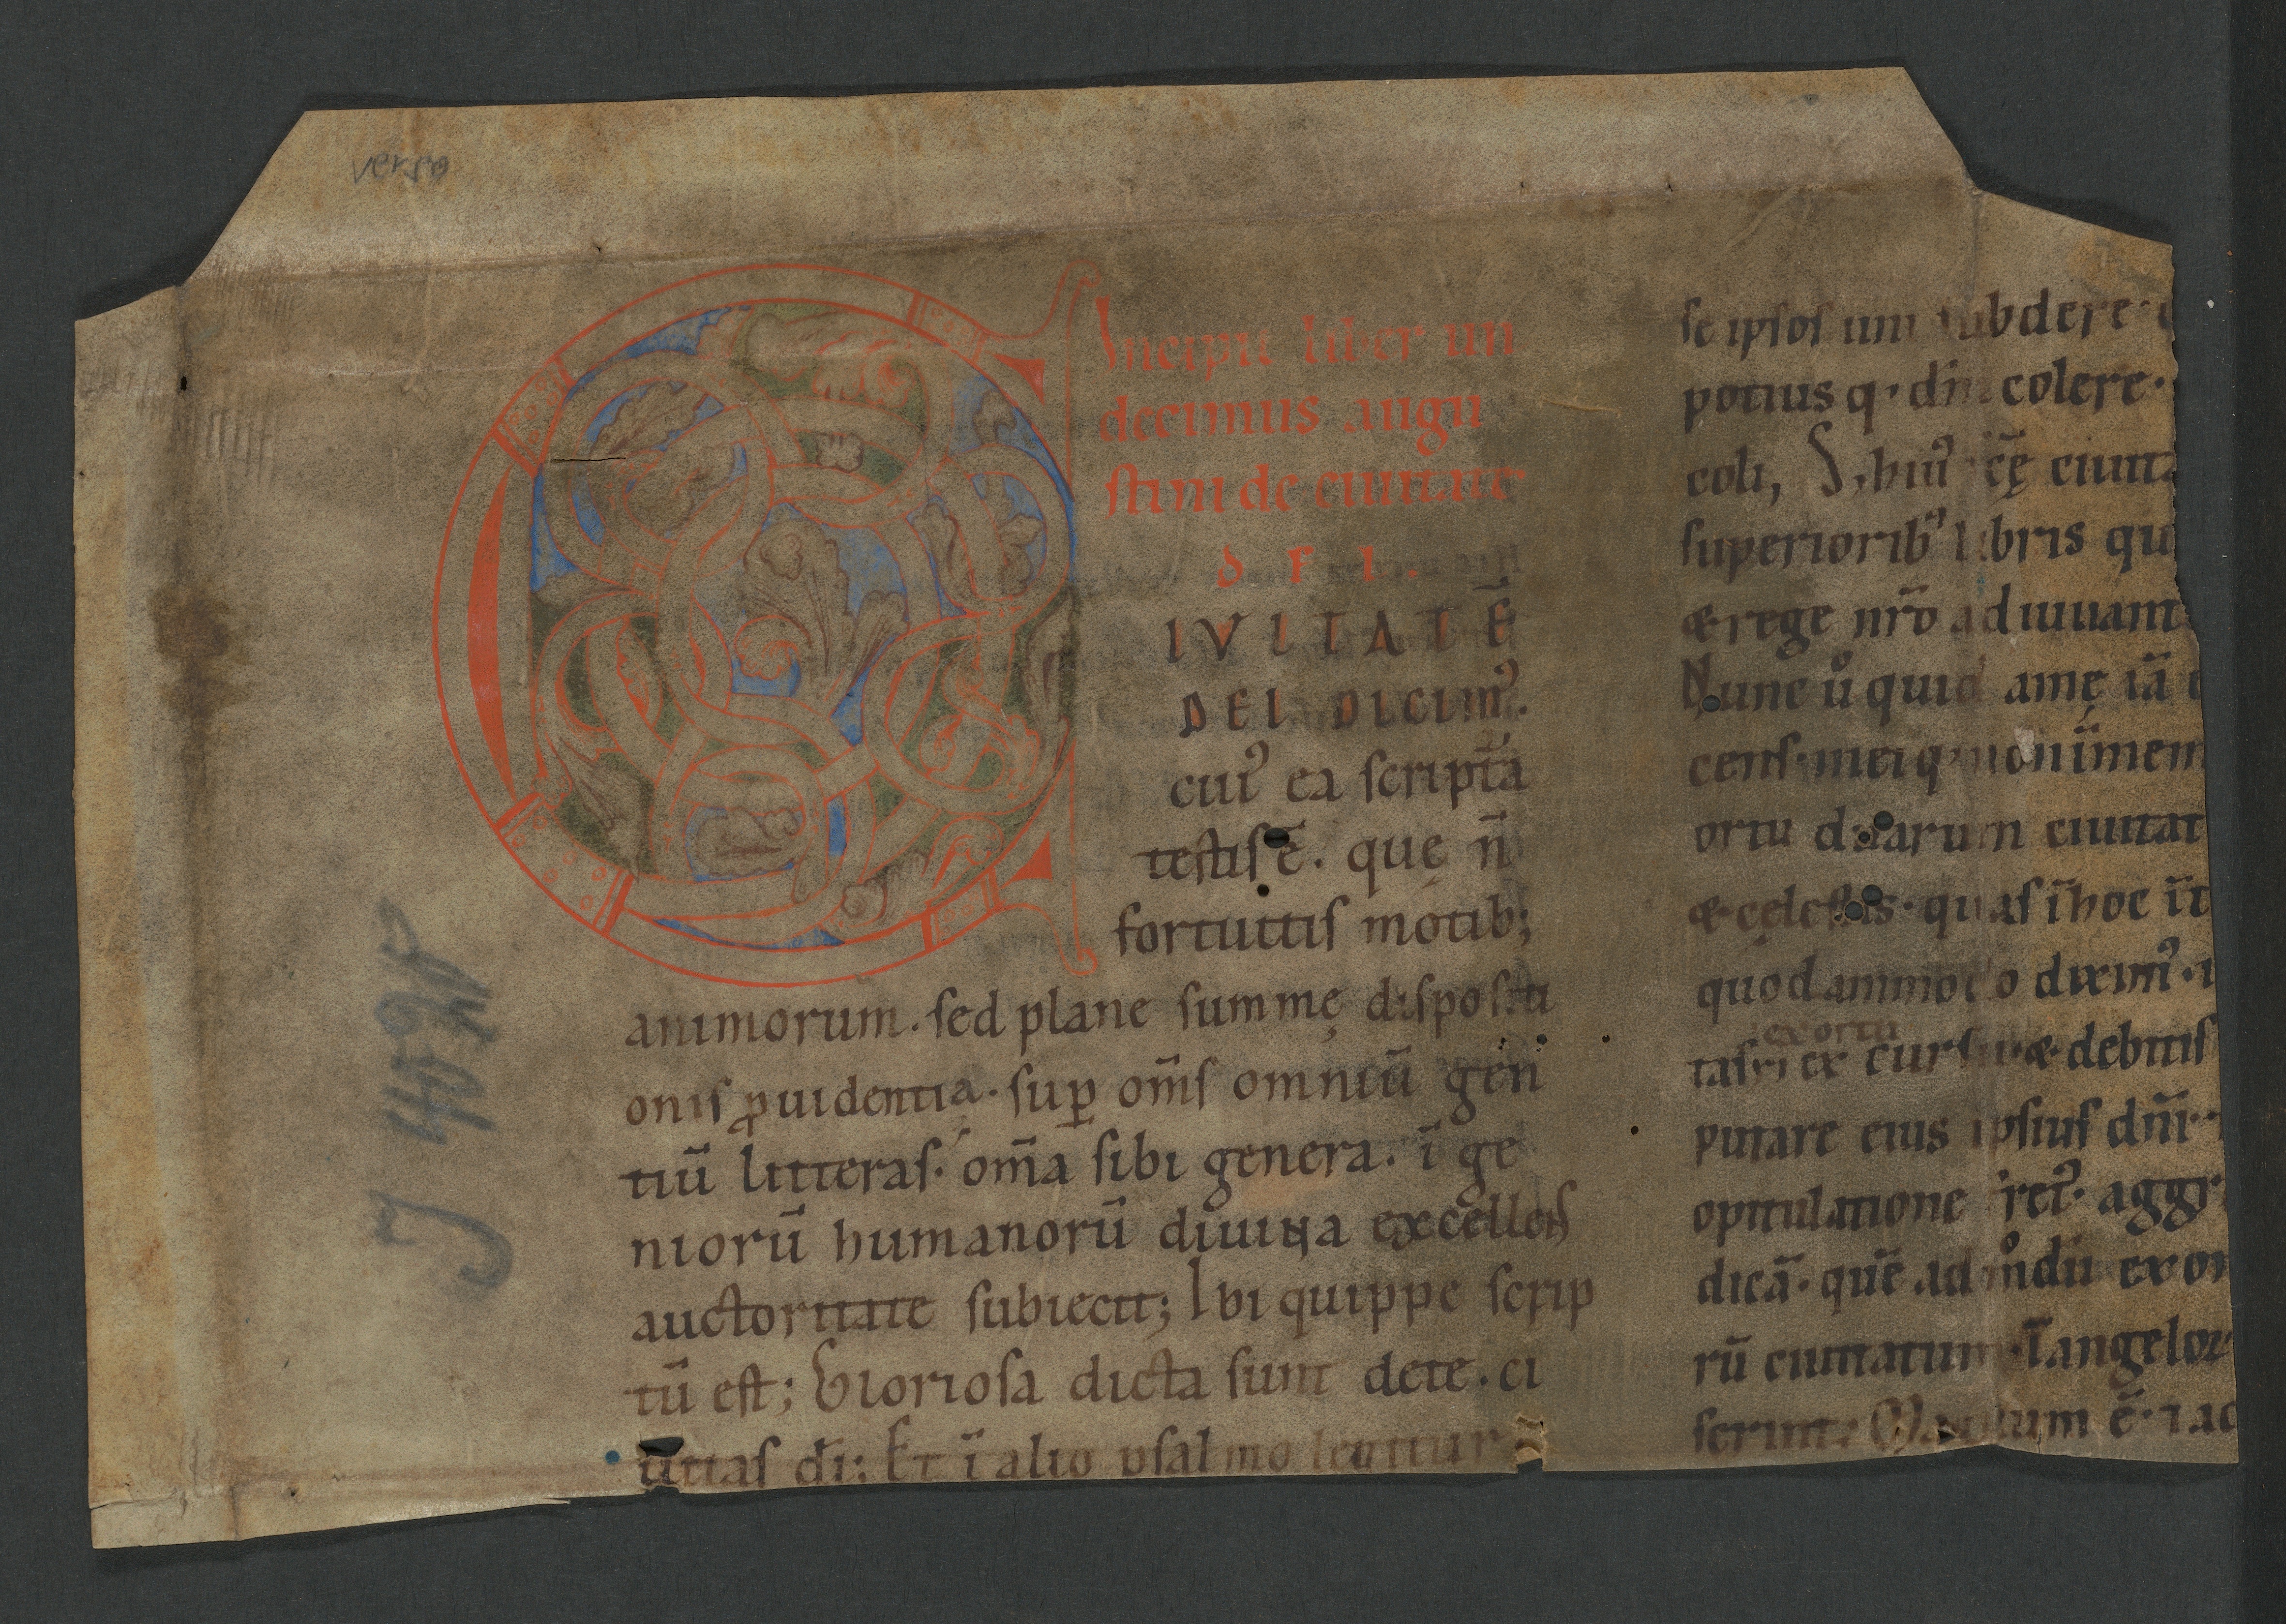 verso
Incipit liber un
decimus augu
stini de ciuitate
D E I .
C
IVITATĒ
DEI DICIMꝰ.
cuiꝰ ea scriptᷓa
testis ē. quę n̄
fortuitis motib;
animorum. sed plane summę dispositi
onis ꝓuidentia. suꝑ om̄s omniū gen
tiū litteras. om̄a sibi genera. ī ge
niorū humanorū diuina excellēs
auctoritate subiecit; Ibi quippe scrip
tū est; Gloriosa dicta sunt dete. ci
uitas dī; Et ī alio psalmo legitur
se ipsos uni subdere.
potius q. dm̄ colere.
coli, S; huiꝰ scę ciuita
superioribꝰ libris qu
& rege nr̄o adiuuant
Nunc ů quid amę iā
cens. meiq; non īmem
ortu duarum ciuitat
& cęlestis. quas ī hoc īt
quodammodo diximꝰ.
exortu
tas et ex cursu & debitis
putare eius ipsius dn̄i.
opitulatione fretꝰ. aggr
dicā. quē ad m̊dū exor
rū ciuitatum. ī angelor
serunt;
J 4028